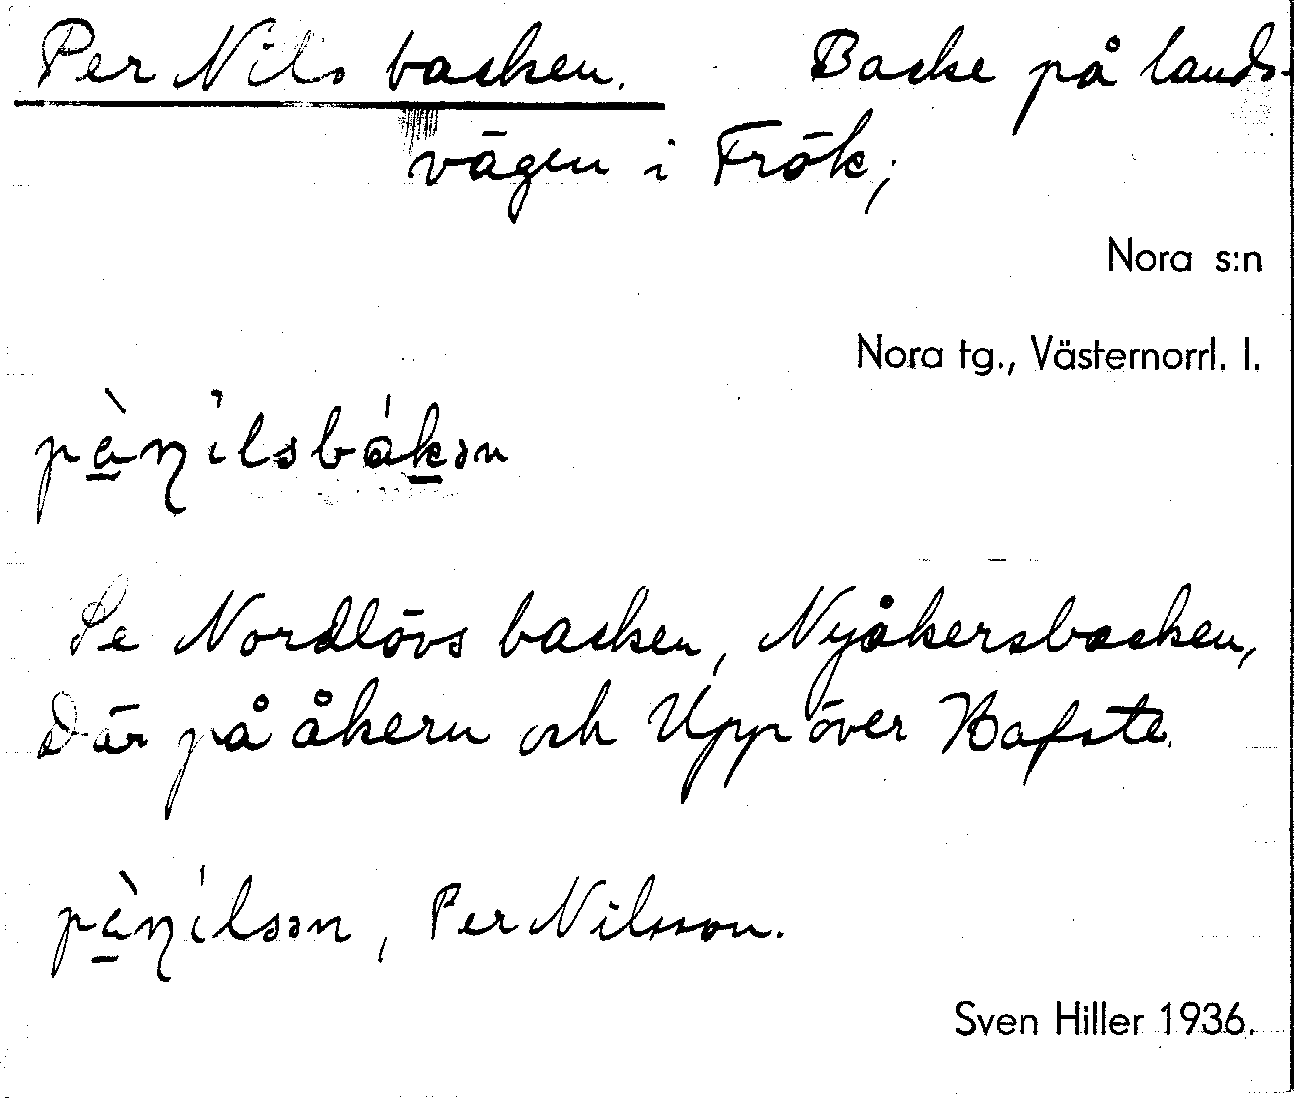 Per Nils backen. Backe på lands-
vägen i Frök;
Nora s:n
Nora tg., Västernorrl. l.
Se Nordlövs backen, Nyåkersbacken,
Där på åkern och Uppöver Hafste.
Per Nilsson.
Sven Hiller 1936.